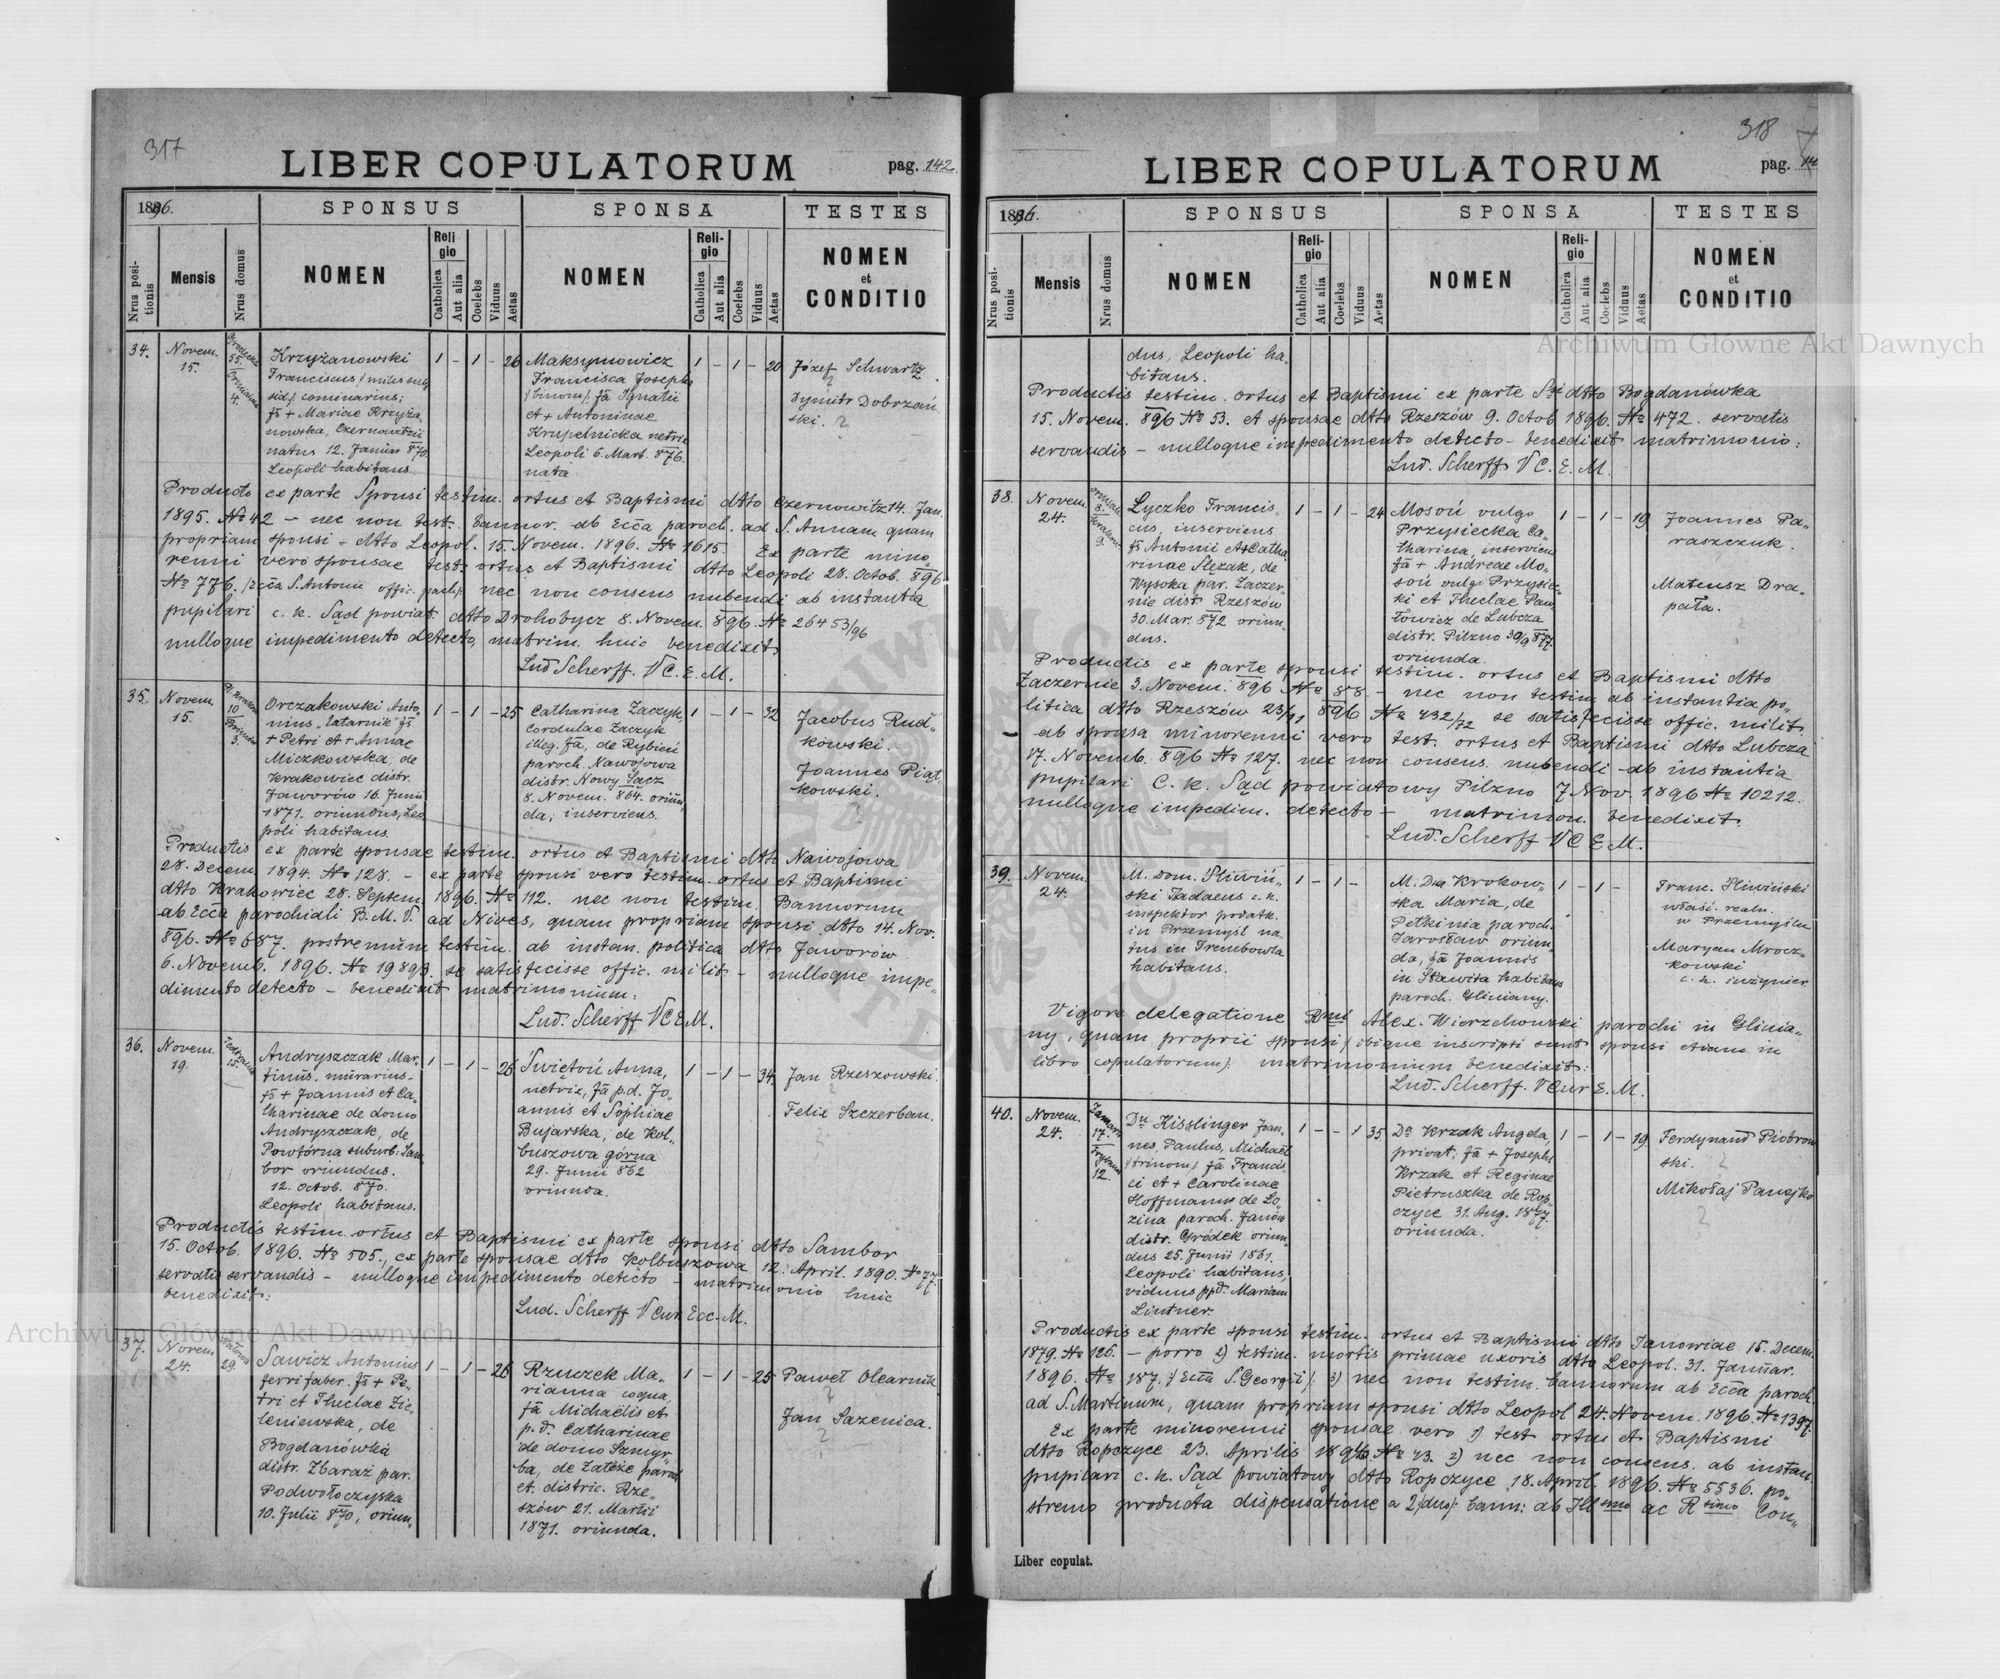 317
LIBER COPULATORUM
pag. 142.
1896.
SPONSUS
SPONSA
TESTES
Nrus positionis
Mensis
Nrus domus
NOMEN
Religio
Catholica
Aut alia
Coelebs
Viduus
Aetas
NOMEN
Religio
Catholica
Aut alia
Coelebs
Viduus
Aetas
NOMEN
et
CONDITIO
34.
Novem.
15.
55.
4.
Krzyżanowski
Franciscus /miles
fs + Mariae Krzyża
nowska, Czernowitzii
natus 12. Januar 870
Leopoli habitans
1 – 1 – 26
Maksymowicz
Francisca Josepha
/binom/, fa Ignatii
et + Antoninae
Krupelnicka netrix
Leopoli 6. Mart. 876.
nata
1 – 1 – 20
Józef Schwartz
Dymitr Dobrzań
ski.
Producto ex parte Sponsi testim. ortus et Baptismi dtto Czernowitz 14. Jan.
1895. No 42 – nec non test. bannor. ab Ecca paroch. ad S. Annam quam
propriam sponsi – dtto Leopol. 15. Novem. 1896. No 1615. Ex parte mino„
renni vero sponsae test. ortus et Baptismi dtto Leopoli 28. Octob. 896
No 776. /Ecca S. Antonii offic. paroch/: nec non consens nubendi ab instantia
pupilari c. k. Sąd powiat. dtto Drohobycz 8. Novem. 896. No 26453/96
nulloque impedimento detecto, matrim. huic benedixit
Lud Scherff. VC. E. M.
35.
Novem.
15.
10
3.
Orczakowski Anto„
nius „latarnik" fs
+ Petri et + Annae
Miczkowska, de
Krakowiec distr.
Jaworów 16. Junii
1871. oriundus, Leo
poli habitans.
1 – 1 – 25
Catharina Zaczyk,
Cordulae Zaczyk
illeg. fa, de Rybień
paroch. Nawojowa
distr. Nowy Sącz
8. Novem. 864. oriun„
da, inserviens.
1 – 1 – 32
Jacobus Rud„
kowski.
Joannes Piąt„
kowski.
Productis ex parte sponsae testim. ortus et Baptismi dtto Nawojowa
28. Decem. 1894. No 128. – ex parte sponsi vero testim. ortus et Baptismi
dtto Krakowiec 28. Septem. 1896. No 112. nec non testim. Bannorum
ab Ecca parochiali B. M. V. ad Nives, quam propriam sponsi dtto 14. Nov.
896. No 687. postremum testim. ab instan. politica dtto Jaworów
6. Novemb. 1896. No 19893. se satisfecisse offic. milit – nulloque impe„
dimento detecto – benedixit matrimonium:
Lud. Scherff VCEM.
36.
Novem.
19.
15.
Andryszczak Mar„
tinus. murarius.
fs + Joannis et Ca„
tharinae de domo
Andryszczak, de
Powtórna suburb. Sam
bor oriundus.
12. Octob. 870.
Leopoli habitans.
1 – 1 – 26
Świetoń Anna,
netrix, fa p.d. Jo„
annis et Sophiae
Bujarska, de Kol„
buszowa górna
29. Junii 862
oriunda.
1 – 1 – 34
Jan Rzeszowski.
Felix Szczerban.
Productis testim. ortus et Baptismi ex parte sponsi dtto Sambor
15. Octob. 1896. No 505., ex parte sponsae dtto Kolbuszowa 12. April. 1890. No 77.
servatis servandis – nulloque impedimento detecto – matrimonio huic
benedixit:
Lud. Scherff VCur. Ecc. M.
37.
Novem
24.
29.
Sawicz Antonius
ferri faber. fs + Pe„
tri et Theclae Zie„
leniewska, de
Bogdanówka
distr. Zbaraż par.
Podwołoczyska
10. Julii 870, oriun„
1 – 1 – 26
Rzuczek Ma„
rianna coqua,
fa Michaelis et
p. d. Catharinae
de domo Szmyr„
ba, de Załęże paroch
et distric. Rze„
szów 21. Martii
1871. oriunda.
1 – 1 – 25
Paweł Olearnik
Jan Sazenica.
318
LIBER COPULATORUM
pag. 14
1896.
SPONSUS
SPONSA
TESTES
Nrus positionis
Mensis
Nrus domus
NOMEN
Religio
Catholica
Aut alia
Coelebs
Viduus
Aetas
NOMEN
Religio
Catholica
Aut alia
Coelebs
Viduus
Aetas
NOMEN
et
CONDITIO
Archiwum Główne Akt Dawnych
dus, Leopoli ha„
bitans.
Productis testim. ortus et Baptismi ex parte Ssi dtto Bogdanówka
15. Novem. 896 No 53. et sponsae dtto Rzeszów 9. Octob 1896. No 472. servatis
servandis – nulloque impedimento detecto – benedixit matrimonio:
Lud. Scherff VC. E. M.
38.
Novem.
24.
8.
9.
Łyczko Francis„
cus, inserviens
fs Antonii et + Catha
rinae Ślęzak, de
Wysoka par. Zaczer„
nie distr Rzeszów
30. Mar. 872 oriun„
dus.
1 – 1 – 24
Mosoń vulgo
Przysiecka Ca„
tharina, inserviens
fa + Andreae Mo„
soń vulgo Przysiec„
ki et Theclae Paw
łowicz de Lubcza
distr. Pilzno 30/9 877.
oriunda.
1 – 1 – 19
Joannes Pa„
raszczuk.
Mateusz Dra„
pała.
Productis ex parte sponsi testim. ortus et Baptismi dtto
Zaczernie 3. Novem. 896 No 88. – nec non testim ab instantia po„
litica dtto Rzeszów 23/11 896 No 432/72 se satisfecisse offic. milit.
– ab sponsa minorenni vero test. ortus et Baptismi dtto Lubcza
17. Novemb. 896 No 127. nec non consens. nubendi ab instantia
pupilari C. k. Sąd powiatowy Pilzno 7. Nov. 1896 No 10212.
nulloque impedim. detecto – matrimon. benedixit.
Lud. Scherff VC E. M.
39.
Novem.
24.
M. Dom. Śliwiń„
ski Tadaeus c. k.
inspektor podatk.
in Przemyśl na
tus in Trembowla
habitans.
1 – 1 –
M. Dna Krokow„
ska Maria, de
Pełkinia paroch.
Jarosław oriun„
da, fa Joannis
in Sławita habitans
paroch. Gliniany.
1 – 1 –
Franc. Śliwiński
właśc. realn.
w Przemyślu
Maryan Mrocz„
kowski
c. k. inżynier
Vigore delegatione Rmi Alex. Wierzchowski parochi in Glinia„
ny, quam proprii sponsi /ibique inscripti sunt sponsi etiam in
libro copulatorum/: matrimonium benedixit:
Lud. Scherff. VCur E. M.
40.
Novem.
24.
17.
12.
Dn Kisslinger Joan„
nes, Paulus, Michael
/trinom/ fs Francis„
ci et + Carolinae
Hoffmann de Ło„
zina paroch. Janów
distr. Gródek oriun„
dus 25. Junii 1861.
Leopoli habitans,
viduus p.d. Mariam
Lintner.
1 – – 1 35
Da Krzak Angela,
privat, fa + Josephi
Krzak et Reginae
Pietruszka de Rop„
czyce 31. Aug. 1877.
oriunda.
1 – 1 – 19
Ferdynand Piotrow
ski.
Mikołaj Panejko
Productis ex parte sponsi testim. ortus et Baptismi dtto Janowiae 15. Decem.
1879. No 126. – porro 2) testim. mortis primae uxoris dtto Leopol. 31. Januar.
1896. No 187. /Ecca S. Georgii/: 3) nec non testim. bannorum ab Ecca paroch.
ad S. Martinum, quam propriam sponsi dtto Leopol 24. Novem. 1896. No 1397.
Ex parte minorenni sponsae vero 1) test ortus et Baptismi
dtto Ropczyce 23. Aprilis 1896 No 43. 2) nec non consens. ab instan.
pupilari c. k. Sąd powiatowy dtto Ropczyce 18. April. 1896. No 5536. po„
stremo producta dispensatione a 2 /duo/: bann: ab Illsmo ac Rsimo Con„
Liber copulat.
Archiwum Główne Akt Dawnych